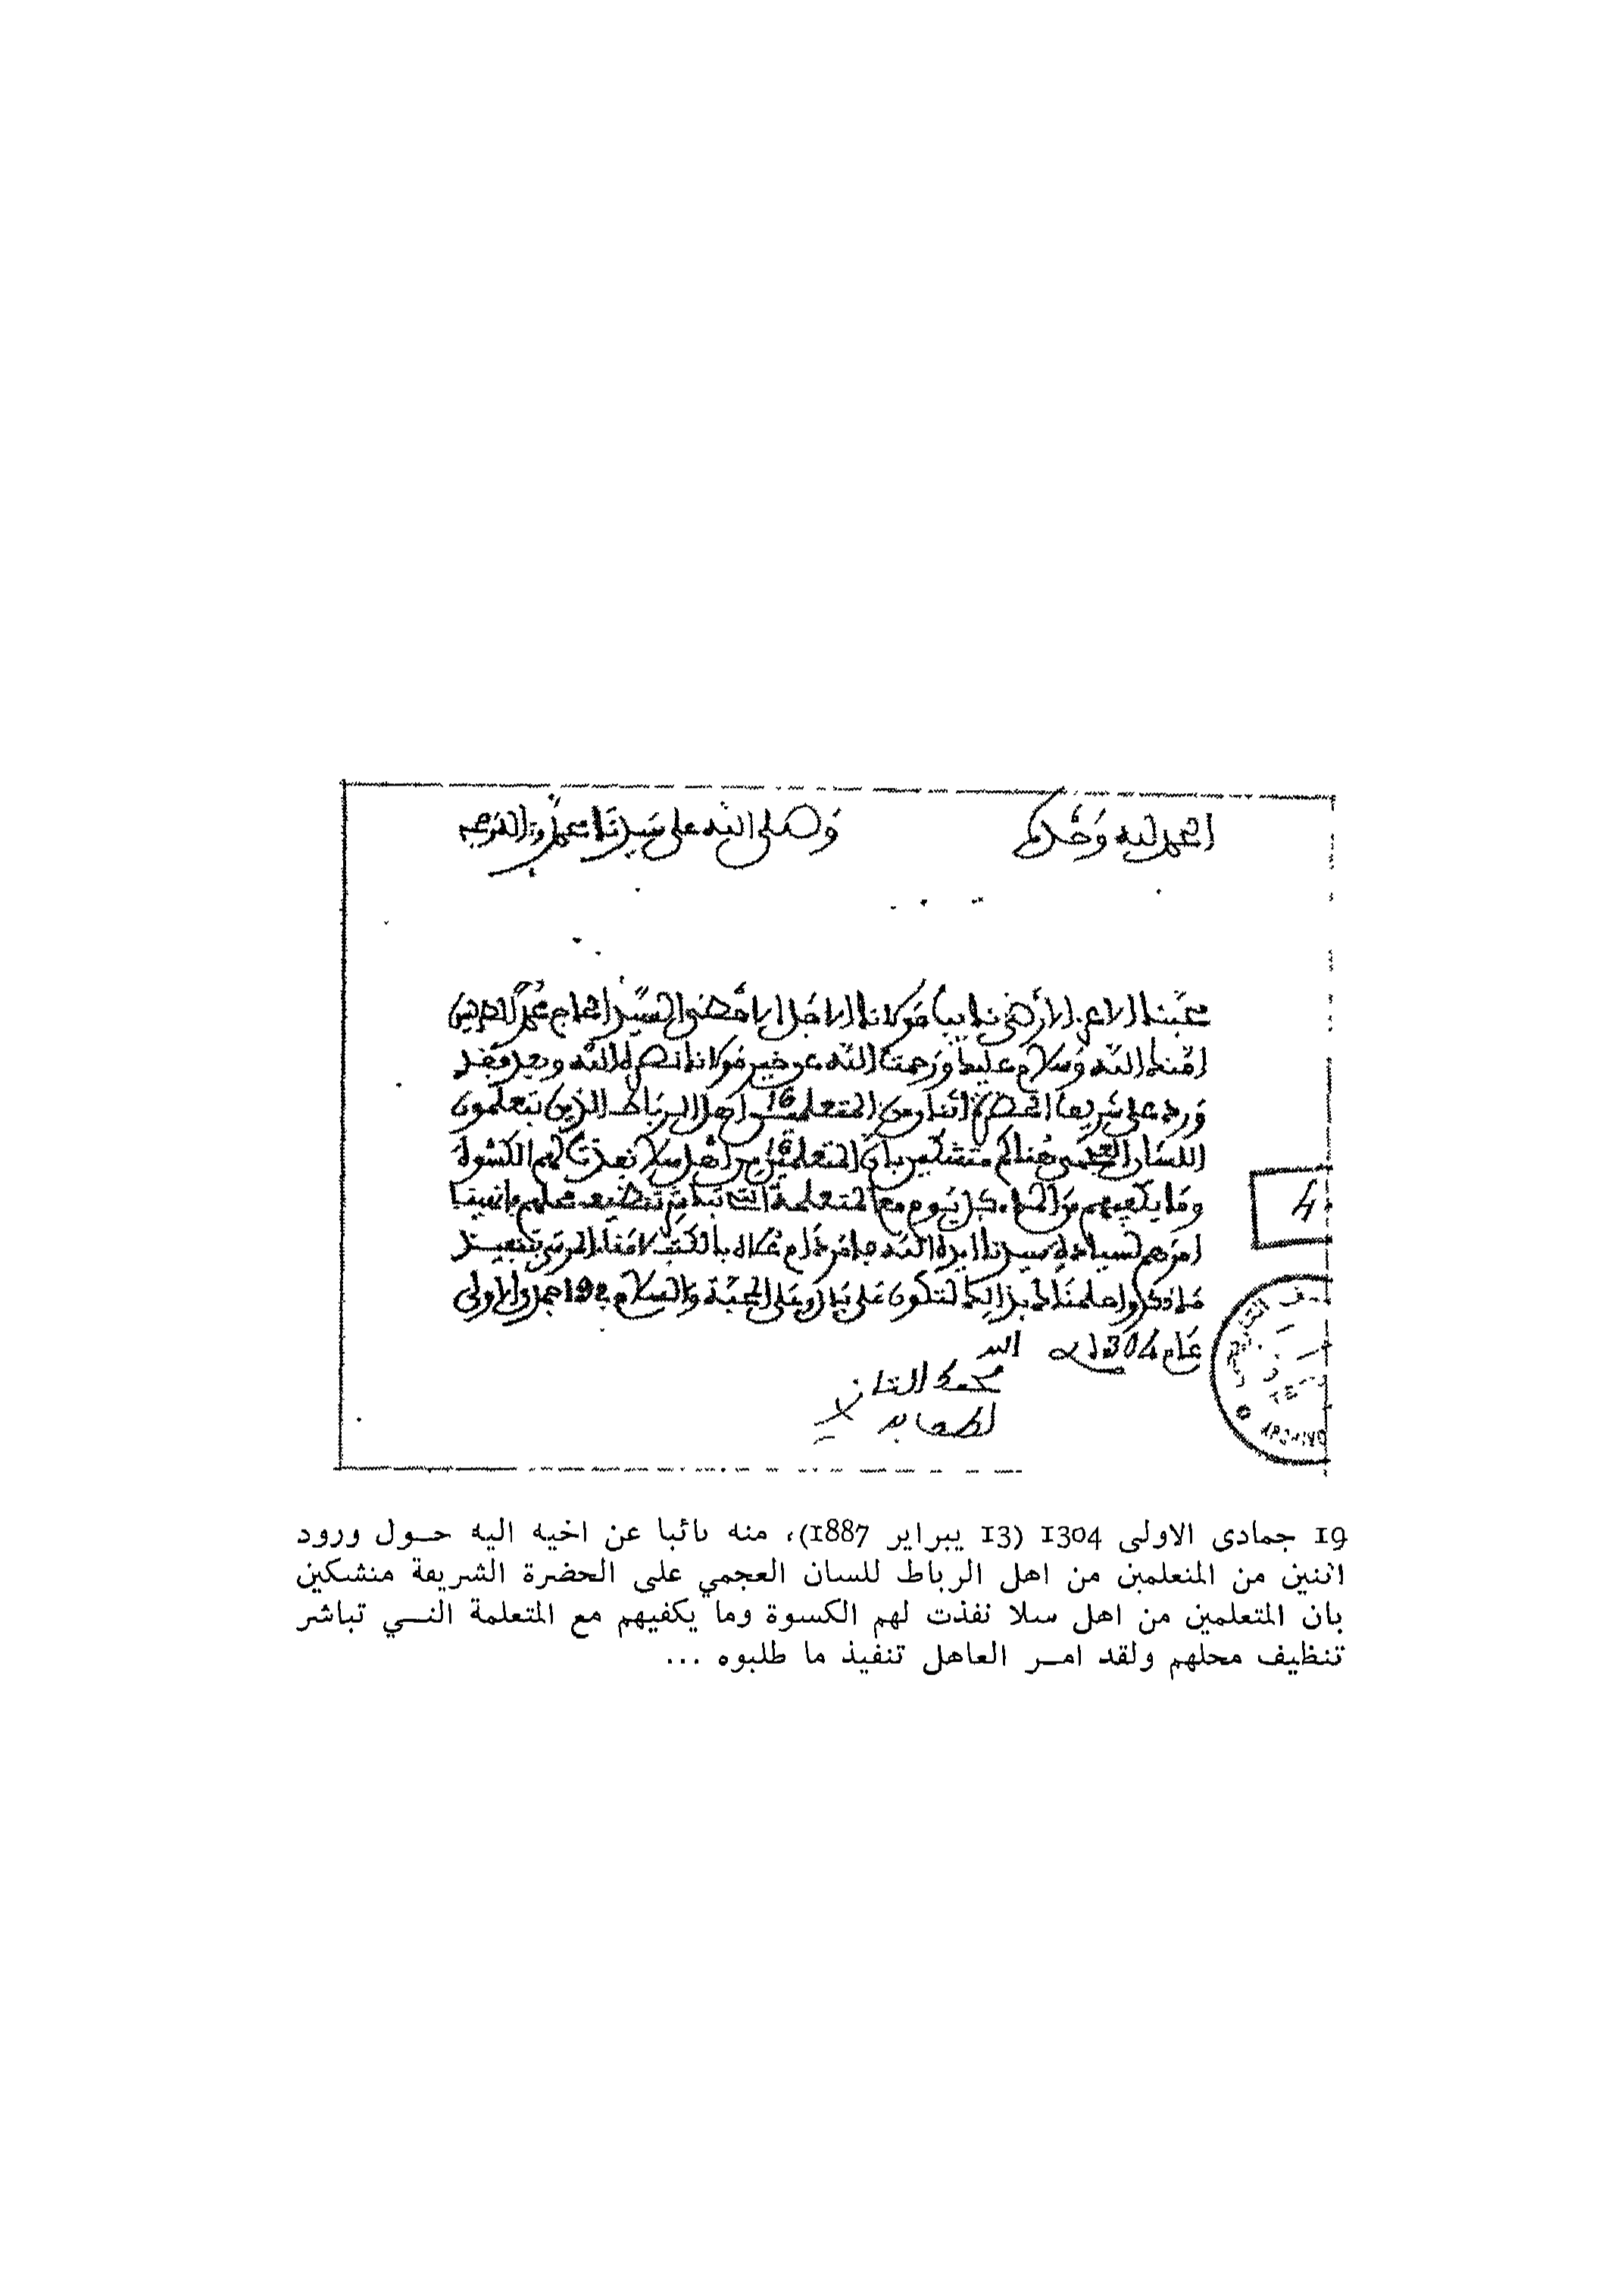 الحمد لله وحده وصلى الله على سيدنا محمد وآله وصحبه
محبنا الاعز الارضى نايب مولانا الاجل الامضى السيد الحاج محمد الطريس
امنك الله وسلام عليك ورحمت الله عن خير مولانا نصره الله وبعد فقد
ورد على شريف الحضرة اثنان من المتعلمين من اهل الرباط الذين يتعلمون
اللسان العجمي هناكم متشكين بان المتعلمين من اهل سلا نفذت لهم الكسوة
وما يكفيهم من كل يوم مع المتعلمة التي تباشر تنظيف محلهم وانهينا
امرهم لسيادة سيدنا ايده الله فامر دام علاه بالكتب لامناء المرسى بتنفيذ
ما ذكر واعلمناك بذالك لتكون على بال وعلى المحبة والسلام في 19 جمدى الاولى
عام 1304
محمد
4
19 جمادى الاولى 1304 (13 يبراير 1887)، منه نائبا عن اخيه اليه حــول ورود
اثنين من المتعلمين من اهل الرباط للسان العجمي على الحضرة الشريفة متشكين
بان المتعلمين من اهل سلا نفذت لهم الكسوة وما يكفيهم مع المتعلمة التــي تباشر
تنظيف محلهم ولقد امــر العاهل تنفيذ ما طلبوه ...